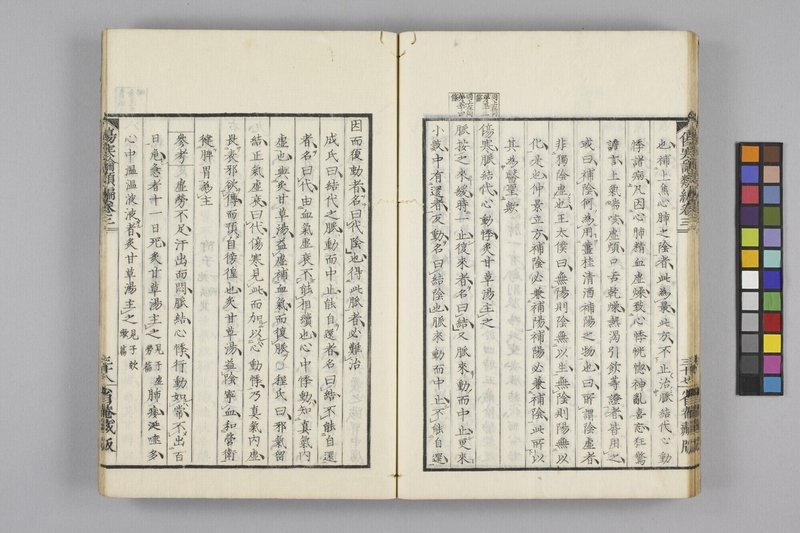 也補上焦心肺之陰者此為最此方不止治脈結代心動
悸諸病凡因心肺精血虛燥致心悸恍惚神亂喜忘狂驚
讝言上氣喘咳虛煩口舌乾燥無渴引飲等證者皆用之
或曰補陰何為用薑桂清酒補陽之物也曰所謂陰虛者
非獨陰虛也王太僕曰無陽則陰無以生無陰則陽無以
化是也仲景立方補陰必兼補陽補陽必兼補陰此所以
其為醫聖歟
傷寒脈結代心動悸炙甘草湯主之
脈按之來緩時一止復來者名曰結又脈來動而中止更來
小數中有還者反動名曰結陰也脈來動而中止不能自還
因而復動者名曰代陰也得此脈者必難治
成氏曰結代之脈動而中止能自還者名曰結不能自還
者名曰代由血氣虛衰不能相續也心中悸動知真氣內
虛也與炙甘草湯益虛補血氣而復脈程氏曰邪氣留
結正氣虛衰曰代傷寒見此而加以心動悸乃真氣內虛
炙甘草湯益陰寧血和營衛
健脾胃為主
參考虛勞不足汗出而悶脈結心悸行動如常不出百
日危急者十一日死炙甘草湯主之
心中溫溫液液者炙甘草湯主之
傷寒論類編卷三